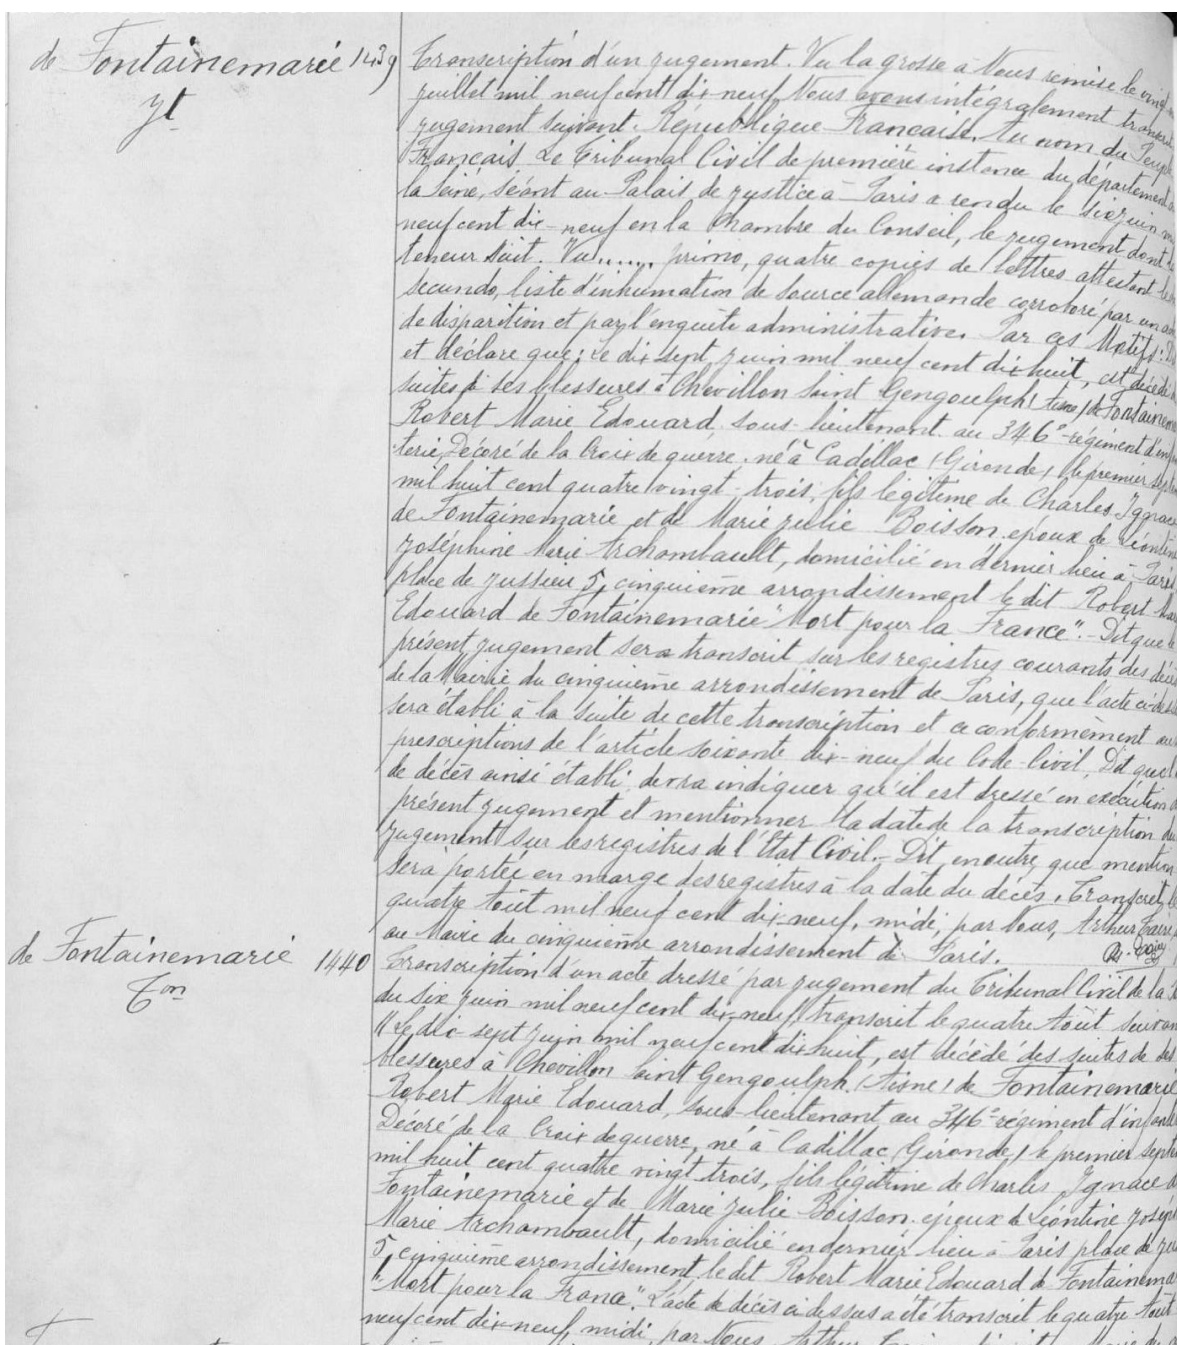 de Fontainemarie
Jt
1439
Transcription d'un jugement. Vu la grosse à Nous remise le vingt
juillet mil neuf cent dix-neuf Nous avons intégralement transcrit
jugement suivant. République Française. Au nom du Peuple
Français Le Tribunal Civil de première instance du département
la Seine, séant au Palais de justice à Paris a rendu le six juin mil
neuf cent dix-neuf en la Chambre du Conseil, le jugement dont la
teneur suit. Vu...... primo, quatre copies de lettres attestant
secundo, liste d'inhumation de source allemande corroboré par un
de disparition et par l'enquête administrative. Par ces Motifs: Dit
et déclare que: Le dix sept juin mil neuf cent dix huit, est décédé
suites de ses blessures à Chevillon Saint Gengoulph (Aisne) de Fontainem
Robert Marie Edouard sous-lieutenant au 346e régiment d'infan
terie, Décoré de la Croix de guerre, né à Cadillac (Gironde) le premier sept
mil huit cent quatre vingt-trois, fils légitime de Charles Ignace
de Fontainemarie et de Marie Julie Boisson. époux de Léontine
Joséphine Marie Archambault, domicilié en dernier lieu à Paris
place de Jussieu 5, cinquième arrondissement le dit Robert Mar
Edouard de Fontainemarie "Mort pour la France". - Dit que le
présent jugement sera transcrit sur les registres courants des décès
de la Mairie du cinquième arrondissement de Paris, que l'acte ci-dessus
sera établi à la suite de cette transcription et ce conformément aux
prescriptions de l'article soixante dix-neuf du Code Civil, Dit que l
de décès ainsi établi, devra indiquer qu'il est dressé en exécution d
présent jugement et mentionner la date de la transcription du
jugement sur les registres de l'Etat Civil. - Dit, en outre, que mention
sera portée en marge des registres à la date du décès. Transcrit, le
quatre Août mil neuf cent dix neuf, midi, par Nous, Arthur
au Maire du cinquième arrondissement de Paris.
de Fontainemarie
Ton
1440
Transcription d'un acte dressé par jugement du Tribunal Civil de la S
du six juin mil neuf cent dix-neuf, transcrit le quatre Août suivan
"Le dix sept juin mil neuf cent dix huit, est décédé des suites de ses
blessures à Chevillon Saint Gengoulph (Aisne) de Fontainemarie
Robert Marie Edouard, sous-lieutenant au 346e régiment d'infante
Décoré de la Croix de guerre, né à Cadillac (Gironde) le premier septe
mil huit cent quatre vingt trois, fils légitime de Charles Ignace d
Fontainemarie et de Marie Julie Boisson. époux de Léontine Josép
Marie Archambault, domicilié en dernier lieu à Paris place de Ju
5, cinquième arrondissement le dit Robert Marie Edouard de Fontainema
"Mort pour la France". L'acte de décès ci dessus a été transcrit le quatre Août
neuf cent dix-neuf, midi, par Nous, Arthur